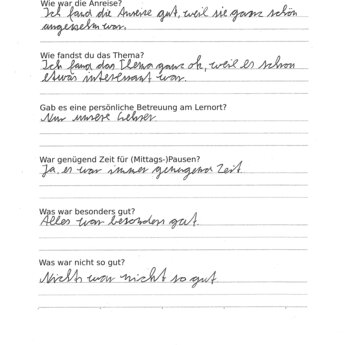 Wie war die Anreise?
Ich fand die Anreise gut, weil sie ganz schön
angesehn war.
Wie fandst du das Thema?
Ich fand das Thema ganz ok, weil es schon
etwas interesannt war.
Gab es eine persönliche Betreuung am Lernort?
Nur unsere Lehrer
War genügend Zeit für (Mittags-)Pausen?
Ja, es war immer genugend Zeit
Was war besonders gut?
Alles war besonders gut
Was war nicht so gut?
Nichts war nicht so gut